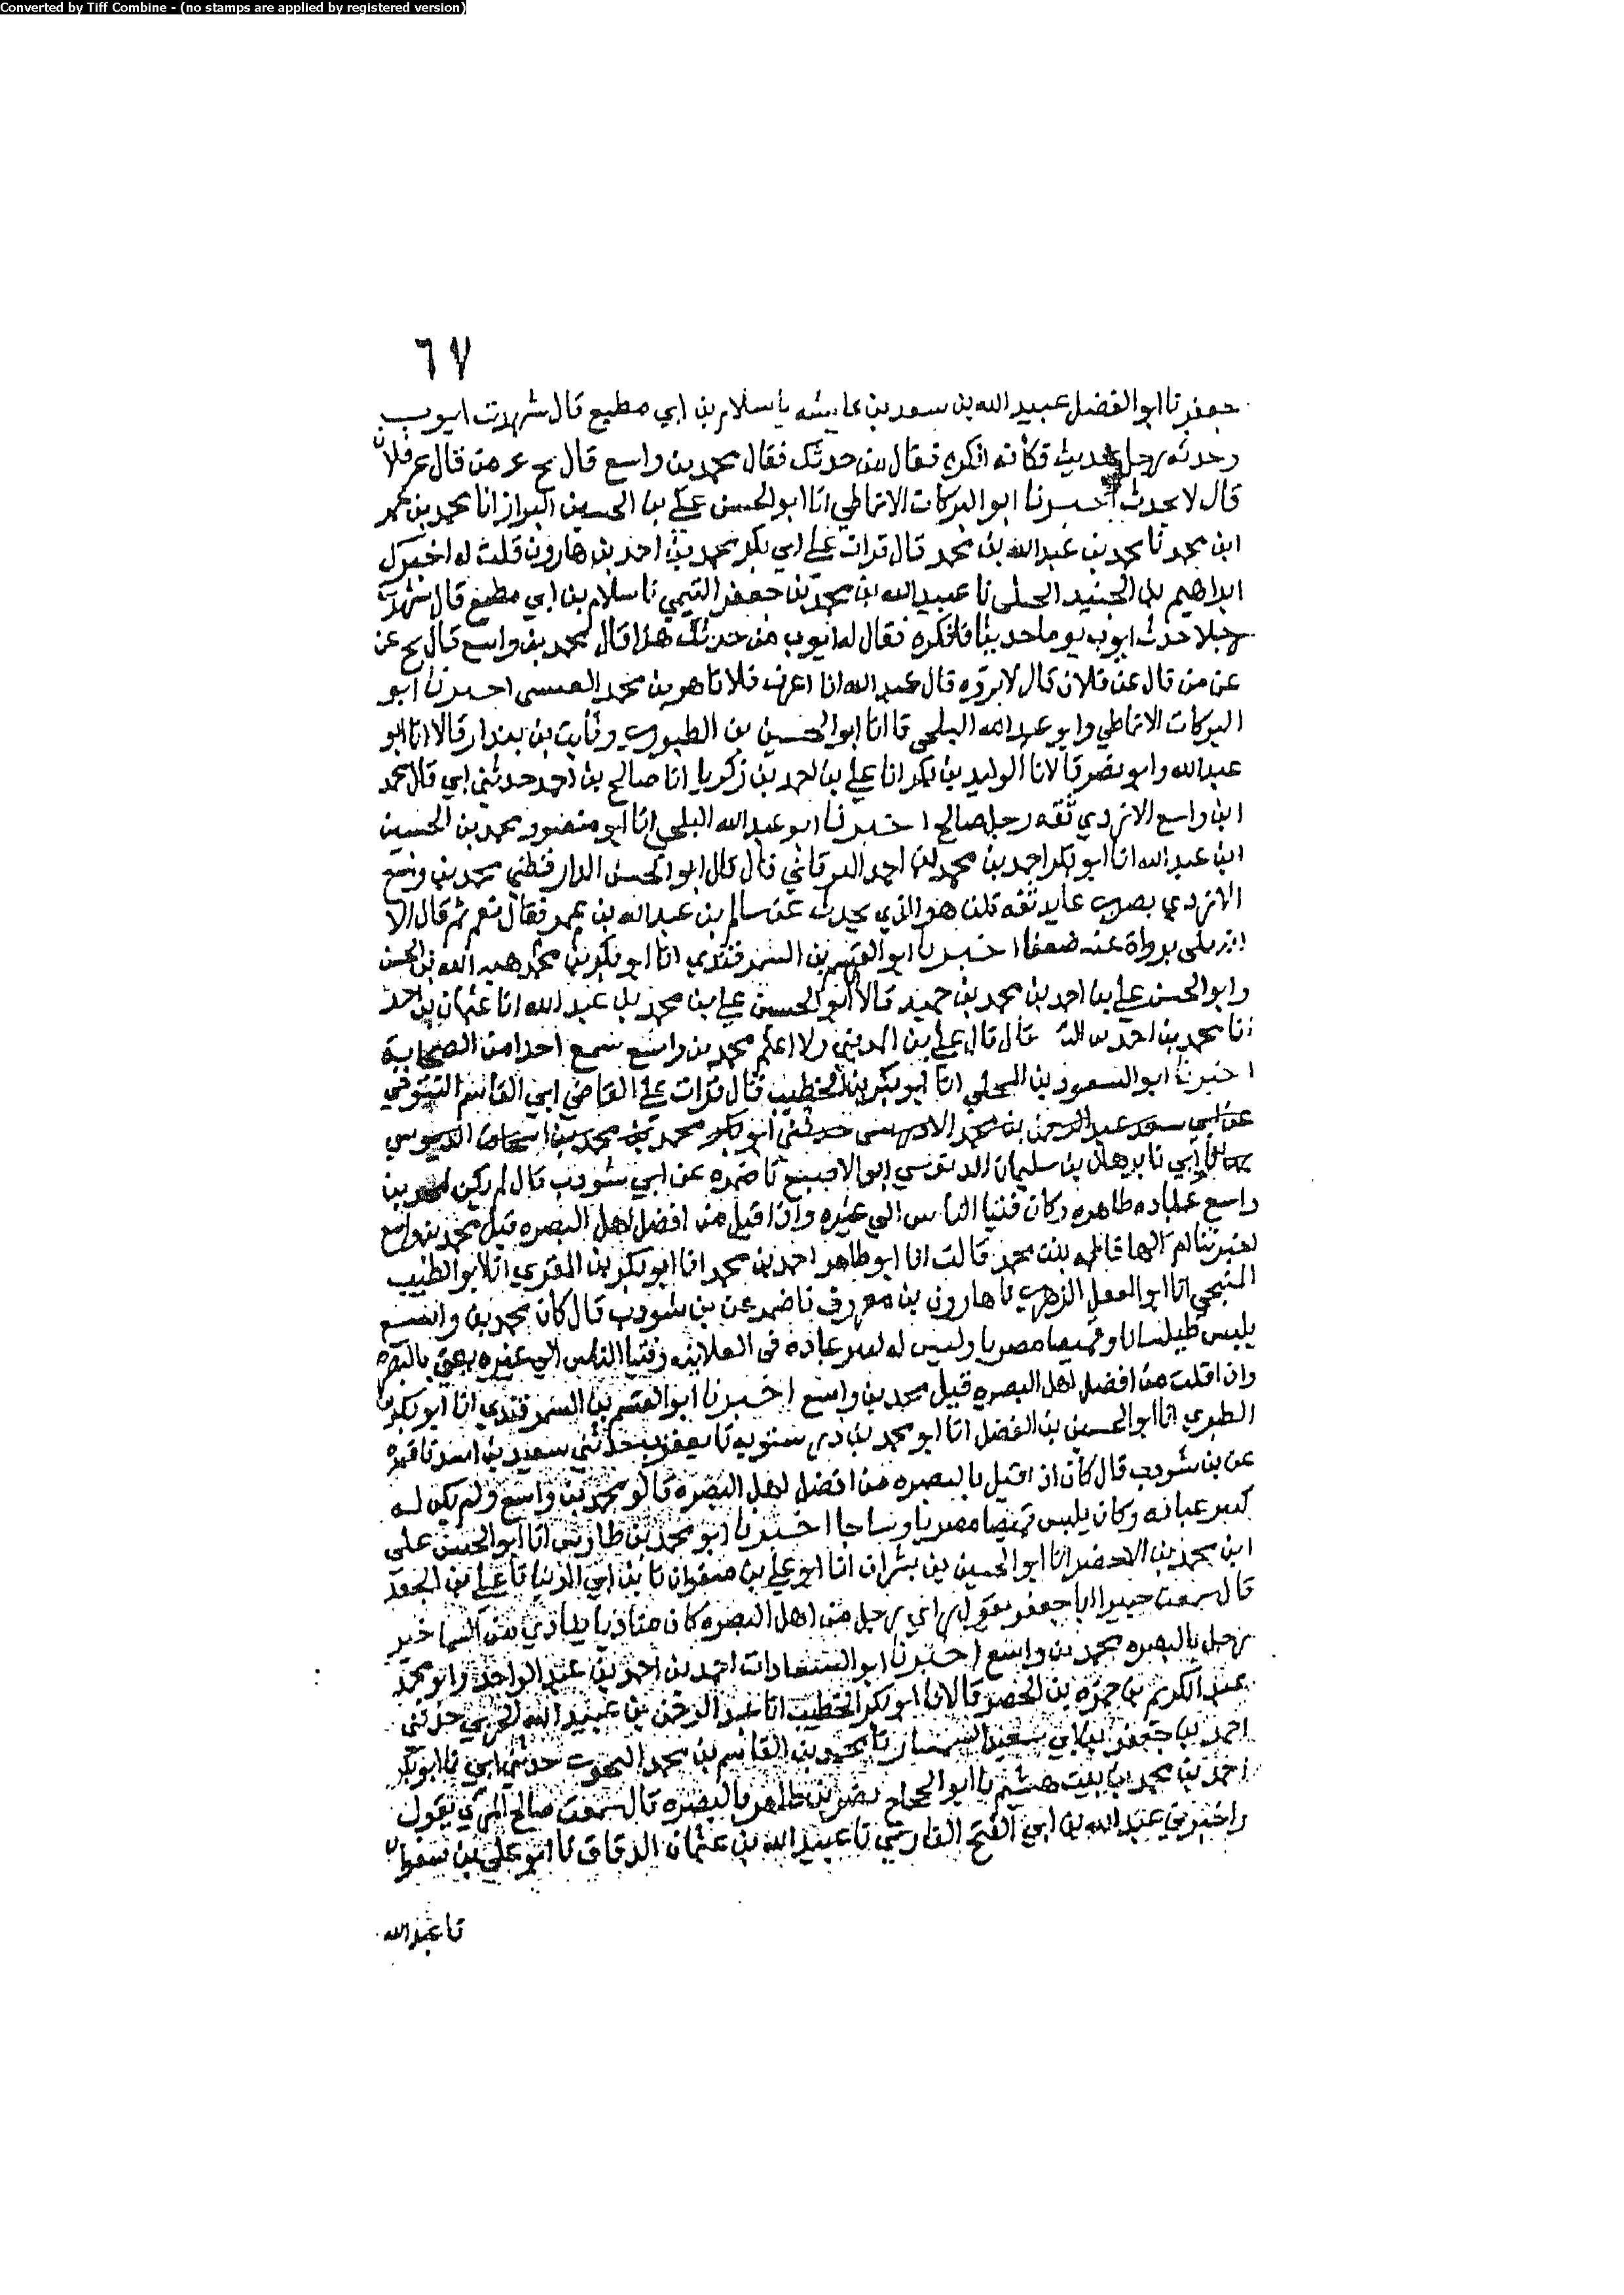 Converted by Tiff Combine - (no stamps are applied by registered version)
٦٧
جعفر نا ابو الفضل عبيد الله بن سعد بن عايشه نا سلام بن ابي مطيع قال شهدت ايوب
وحدثه رجل بحديث فكأنه انكره فقال من حدثك فقال محمد بن واسع قال بخ عن من قال عن فلان
قال لا يحدث اخبرنا ابو البركات الانماطي انا ابو الحسن علي بن الحسين البزاز انا محمد بن عمر
ابن محمد نا محمد بن عبد الله بن محمد قال قرات على ابي بكر محمد بن احمد بن هارون قلت له اخبرك
ابراهيم بن الجنيد الختلي نا عبيد الله بن محمد بن جعفر التيمي نا سلام بن ابي مطيع قال شهدت
رجلا حدث ايوب يوما حديثا فانكره فقال له ايوب من حدثك هذا قال محمد بن واسع قال بخ عن
عن من قال عن فلان قال لا يروه قال عبيد الله انا اعرف فلانا هو بن محمد العبسي اخبرنا ابو
البركات الانماطي وابو عبد الله البلخي قا انا ابو الحسين بن الطيوري وثابت بن بندار قالا انا ابو
عبد الله وابو نصر قالا نا الوليد بن بكر انا علي بن احمد بن زكريا انا صالح بن احمد حدثني ابي قال محمد
ابن واسع الازدي ثقه رجل صالح اخبرنا ابو عبد الله البلخي انا ابو منصور محمد بن الحسين
ابن عبد الله انا ابو بكر احمد بن محمد بن احمد البرقاني قال قال ابو الحسن الدارقطني محمد بن واسع
الازدي بصري عابد ثقه قلت هو الذي يحدث عن سالم بن عبد الله بن عمر فقال نعم ثم قال الا
انه بلي برواة عنه ضعفا اخبرنا ابو القسم بن السمرقندي انا ابو بكر بن محمد هبه الله بن الحسن
وابو الحسن علي بن احمد بن محمد بن حميد قالا انا ابو الحسين علي بن محمد بن عبد الله انا عثمان بن احمد
نا محمد بن احمد بن قال قال علي بن المديني ولا اعلم محمد بن واسع سمع احدا من الصحابة
اخبرنا ابو السعود بن المجلي انا ابو بكر بن الخطيب قال قرات على القاضي ابي القاسم التنوخي
عن ابي سعد عبد الرحمن بن محمد الادريسي حدثني ابو بكر محمد بن محمد بن اسحاق الدبوسي
ابي نا برهان بن سليمان الدبوسي ابو الاصبغ نا ضمره عن ابي شوذب قال لم يكن لمحمد بن
واسع عباده طاهره وكان فتيا الناس الي غيره واذا قيل من افضل اهل البصره قيل محمد بن واسع
اخبرتنا ام البها فاطمه بنت محمد قالت انا ابو طاهر احمد بن محمد انا ابو بكر بن المقري انا ابو الطيب
المنبجي انا ابو الفضل الزهري نا هارون بن معروف نا ضمره عن بن شوذب قال كان محمد بن واسع
يلبس طيلسانا وقميصا مصريا وليس له كبير عباده في العلانيه وفتيا الناس الي غيره يعني بالبصره
واذا قلت من افضل اهل البصره قيل محمد بن واسع اخبرنا ابو القسم بن السمرقندي انا ابو بكر بن
الطبري انا ابو الحسين بن الفضل انا ابو محمد بن درستويه نا يعقوب حدثني سعيد بن اسد نا ضمرة
عن بن شوذب قال كان اذا قيل بالبصره من افضل اهل البصره قالو محمد بن واسع ولم يكن له
كبير عباده وكان يلبس قميصا مصريا وساجا اخبرنا ابو محمد بن طاوس انا ابو الحسن علي
ابن محمد بن الاخضر انا ابو الحسين بن بشران انا ابو علي بن صفوان نا بن ابي الدنيا نا علي بن الجعد
قال سمعت ابا جعفر يقول راي رجل من اهل البصره كان مناديا ينادي من السما خير
رجل بالبصره محمد بن واسع اخبرنا ابو السعادات احمد بن احمد بن عبد الواحد وابو محمد
عبد الكريم بن حمزه بن الخضر قالا انا ابو بكر الخطيب انا عبد الرحمن بن عبيد الله الحربي حدثني
احمد بن جعفر بن ابي سعيد السمسار نا محمد بن القاسم بن محمد حدثني ابي نا ابو بكر
احمد بن محمد بن بنت هشيم نا ابو الحجاج نصر بن طاهر بالبصره قال سمعت صالح المري يقول
واخبرني عبد الله بن ابي الفتح الفارسي نا عبيد الله بن عثمان الدقاق نا ابو علي بن صفوان
نا عبد الله